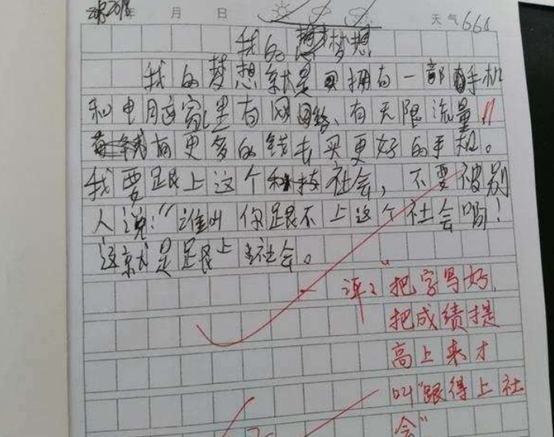 年 月 日 天气 666
我的梦想
我的梦想就是拥有一部手机
和电脑家里有网络、有无限流量!!
有更多的钱去买更好的手机。
我要跟上这个科技社会，不要被别
人说：“谁叫你跟不上这个社会啊！
这就是跟上社会。
评：“把字写好，
把成绩提
高上来才
叫“跟得上社
会”